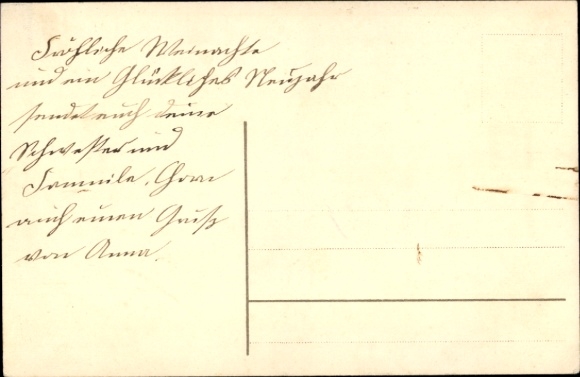 Fröhliche Weinachte
und ein Glückliches Neujahr
sendet euch deine
Schwester und
Fammile.
auch einen Gruß
von Anna.